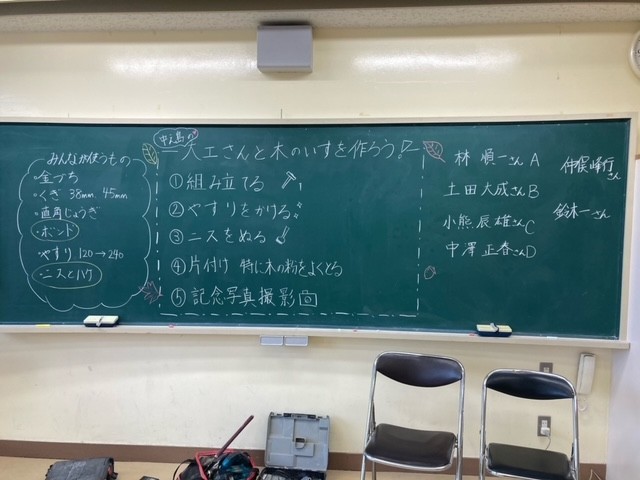 みんなが使うもの
・金づち
・くぎ 38mm. 45mm
・直角じょうぎ
・ボンド
・やすり 120→240
・ニスとハケ
中之島の
大工さんと木のいすを作ろう!
①組み立てる
②やすりをかける
③ニスをぬる
④片付け 特に木の粉をよくとる
⑤記念写真撮影
林 順一さん A
土田大成さん B
小熊辰雄さん C
中澤正春さん D
仲俣峰行さん
鈴木一さん